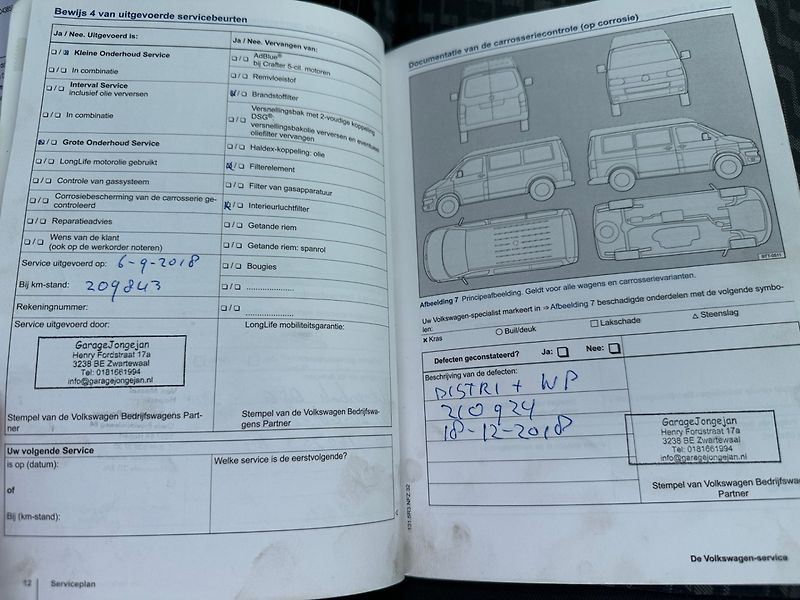 Bewijs 4 van uitgevoerde servicebeurten
Ja / Nee. Uitgevoerd is:
Kleine Onderhoud Service
In combinatie
Interval Service
inclusief olie verversen
In combinatie
Grote Onderhoud Service
LongLife motorolie gebruikt
Controle van gassysteem
Corrosiebescherming van de carrosserie ge-
controleerd
Reparatieadvies
Wens van de klant
(ook op de werkorder noteren)
Service uitgevoerd op: 6-9-2018
Bij km-stand: 209843
Rekeningnummer:
Service uitgevoerd door:
GarageJongejan
Henry Fordstraat 17a
3238 BE Zwartewaal
Tel: 0181661994
info@garagejongejan.nl
Stempel van de Volkswagen Bedrijfswagens Part-
ner
Ja / Nee. Vervangen van:
AdBlue®
bij Crafter 5-cil. motoren
Remvloeistof
Brandstoffilter
Versnellingsbak met 2-voudige koppeling
DSG®:
versnellingsbakolie verversen en eventueel
oliefilter vervangen
Haldex-koppeling: olie
Filterelement
Filter van gasapparatuur
Interieurluchtfilter
Getande riem
Getande riem: spanrol
Bougies
LongLife mobiliteitsgarantie:
Stempel van de Volkswagen Bedrijfswa-
gens Partner
Uw volgende Service
is op (datum):
of
Bij (km-stand):
Welke service is de eerstvolgende?
12 Serviceplan
Documentatie van de carrosseriecontrole (op corrosie)
Afbeelding 7 Principeafbeelding. Geldt voor alle wagens en carrosserievarianten.
Uw Volkswagen-specialist markeert in ⇒ Afbeelding 7 beschadigde onderdelen met de volgende symbo-
len:
× Kras ○ Buil/deuk □ Lakschade △ Steenslag
Defecten geconstateerd? Ja: □ Nee: □
Beschrijving van de defecten:
DISTRI + WP
210924
18-12-2018
GarageJongejan
Henry Fordstraat 17a
3238 BE Zwartewaal
Tel: 0181661994
info@garagejongejan.nl
Stempel van Volkswagen Bedrijfswa
Partner
131.5R3.NFZ.32
De Volkswagen-service